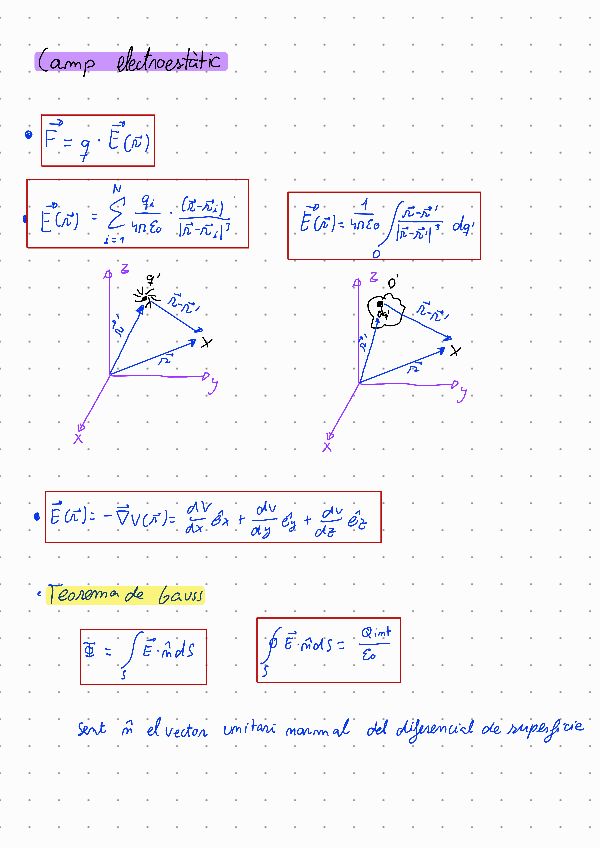 Camp electroestàtic
F⃗ = q · E⃗(r⃗)
E⃗(r⃗) = ∑_{i=1}^{N} q_i/(4πε₀) · (r⃗-r⃗_i)/|r⃗-r⃗_i|³
E⃗(r⃗) = 1/(4πε₀) ∫_{O} (r⃗-r⃗')/|r⃗-r⃗'|³ dq'
z q' r⃗' r⃗-r⃗' X r⃗ y x
z O' dq' r⃗' r⃗-r⃗' X r⃗ y x
E⃗(r⃗) = -∇⃗V(r⃗) = dV/dx ê_x + dV/dy ê_y + dV/dz ê_z
Teorema de Gauss
Φ = ∫_S E⃗ · n̂ dS
∮_S E⃗ · n̂ dS = Q_int/ε₀
sent n̂ el vector unitari normal del diferencial de superfície